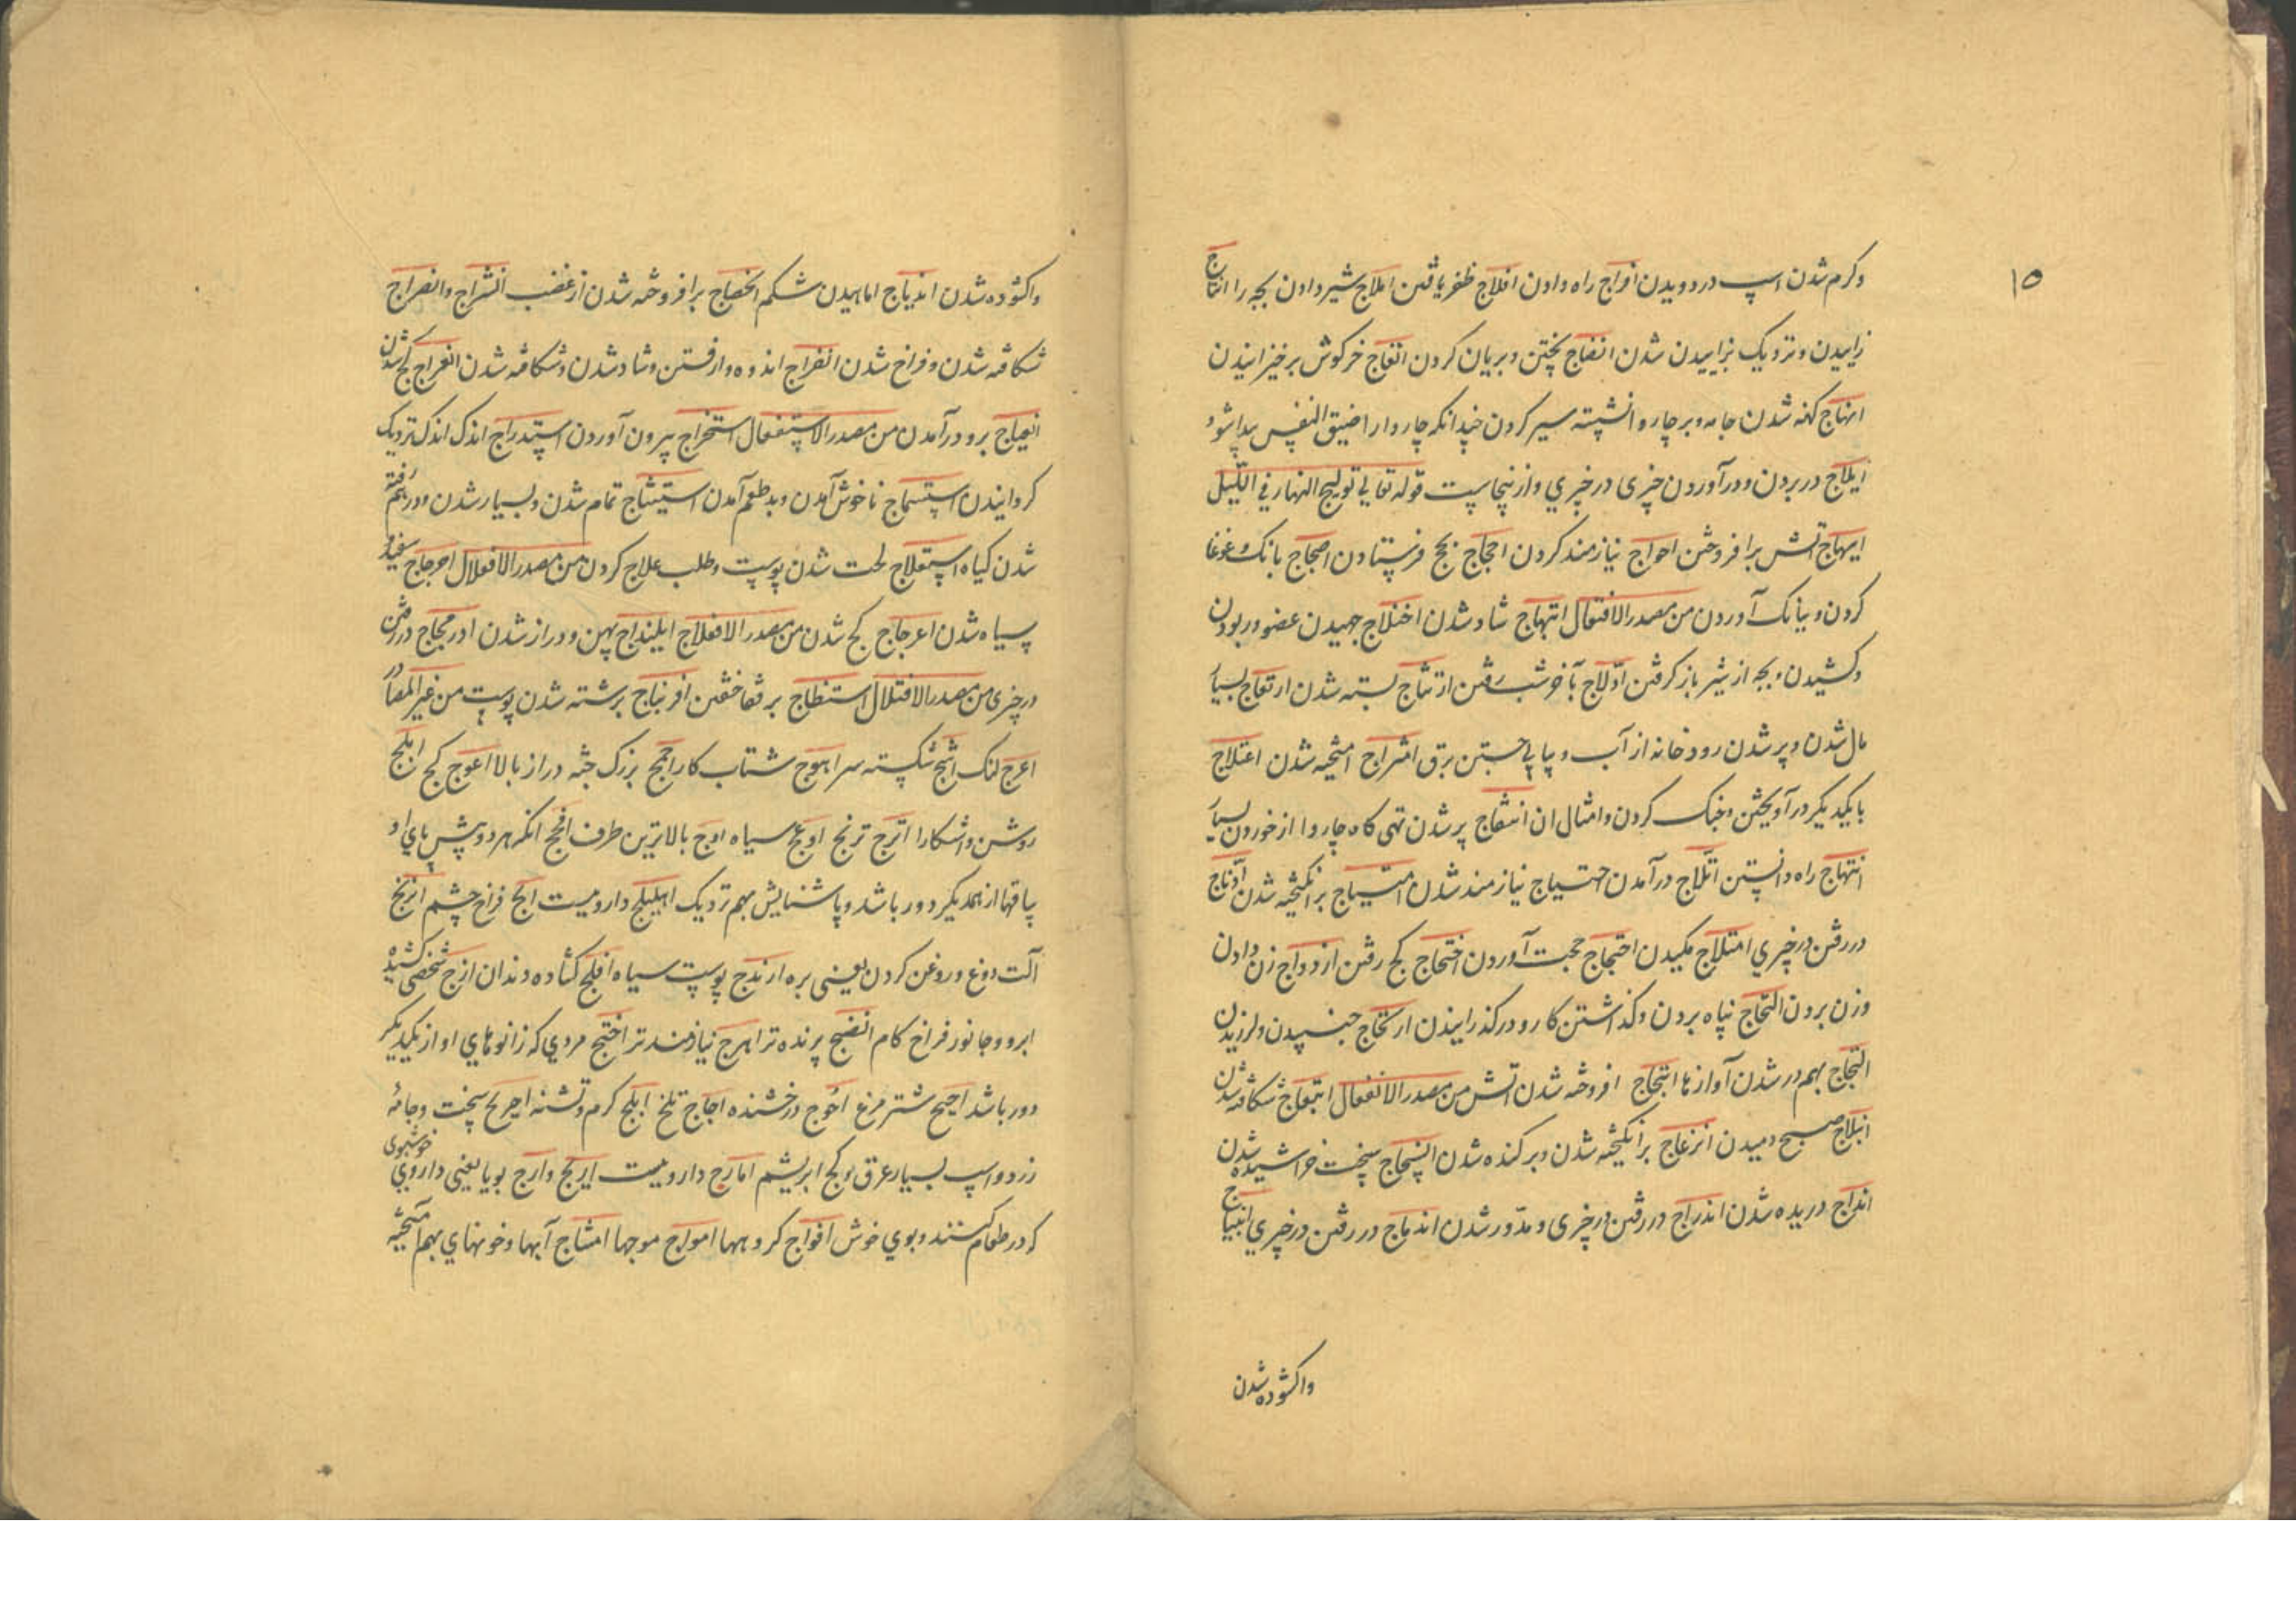 ۱۵
وکرم شدن اسپ در دویدن افراج راه دادن افلاج ظفر یافتن املاج شیر دادن بچه را انتاج
زاییدن و نزدیک بزاییدن شدن انضاج پختن و بریان کردن انفاج خرکوش برخیزانیدن
انهاج کهنه شدن جامه و بر چاروا نشسته سیر کردن چندانکه چاروا را ضیق النفس پیدا شود
ایلاج در بردن و در آوردن چیزی در چیزی و ازینجاست قوله تعالی تولج النهار فی اللیل
ایهاج آتش برافروختن احواج نیازمند کردن احجاج بحج فرستادن اضجاج بانک و غوغا
کردن و ببانک آوردن من مصدر الافتعال ابتهاج شاد شدن اختلاج جهیدن عضو و ربودن
و کشیدن و بچه از شیر باز کرفتن ادّلاج بآخر شب رفتن ارتتاج بسته شدن ارتعاج بسیار
مال شدن و پر شدن رودخانه از آب و پیاپی جستن برق امتزاج امیخته شدن اعتلاج
با یکدیکر در آویختن و جنک کردن و امثال ان انتفاج پر شدن تهی کاه چاروا از خوردن بسیار
انتهاج راه دانستن اتّلاج در آمدن احتیاج نیازمند شدن اهتیاج برانکیخته شدن ادّماج
در رفتن در چیزی امتلاج مکیدن احتجاج حجت آوردن اختجاج کج رفتن ازدواج زن دادن
و زن بردن التحاج پناه بردن و کذاشتن کار و در کذرانیدن ارتجاج جنبیدن و لرزیدن
التجاج بهم در شدن آوازها ائتجاج افروخته شدن آتش من مصدر الانفعال انبعاج شکافته شدن
انبلاج صبح دمیدن انزعاج برانکیخته شدن و برکنده شدن انسحاج سخت خراشیده شدن
اندراج دریده شدن اندراج در رفتن در چیزی و مدّور شدن اندماج در رفتن در چیزی انبیاج
واکشوده شدن
واکشوده شدن اندیاج اماهیدن شکم انحضاج برافروخته شدن از غضب انشراج و انضراج
شکافته شدن و فراخ شدن انفراج اندوه وا رفتن و شاد شدن و شکافته شدن انعراج کج شدن
انعیاج برو در آمدن من مصدر الاستفعال استخراج بیرون آوردن استدراج اندک اندک نزدیک
کردانیدن استسماج ناخوش آمدن و بد طعم آمدن استیثاج تمام شدن و بسیار شدن و در هم رفته
شدن کیاه استعلاج لخت شدن پوست و طلب علاج کردن من مصدر الافعلال اخرجاج سفید و
سیاه شدن اعرجاج کج شدن من مصدر الافعلاج ابلنداج پهن و دراز شدن ادرمجاج در رفتن
در چیزی من مصدر الافتلال استنطاج بر قفا خفتن افرنباج برشته شدن پوست من غیر المصادر
اعرج لنک اشج شکسته سر اهوج شتاب کار اجمج بزرک جثه دراز بالا اعوج کج ابلج
روشن و اشکارا اترج ترنج اوعج سیاه اوج بالاترین طرف افحج انکه هر دو پیش پای او
پاقها از همدیکر دور باشد و پاشنهایش بهم نزدیک اهلیلج دارویست ابج فراخ چشم انرنج
آلت دوغ و روغن کردن یعنی بره ارندج پوست سیاه افلج کشاده دندان ازج شخصی کشیده
ابرو و جانور فراخ کام انضج پرنده تر اهرج نیازمند تر اختج مردی که زانوهای او از یکدیکر
دور باشد اجیج شتر مرغ اخوج درخشنده اجاج تلخ ابلج کرم و تشنه اجریج سخت و جامهٔ
زرد و اسپ بسیار عرق و کج ابریشم امارج دارویست اریج و ارج بویا یعنی داروی خوشبوی
که در طعام کنند و بوی خوش افواج کروهها امواج موجها امشاج آبها و خونهای بهم آمیخته